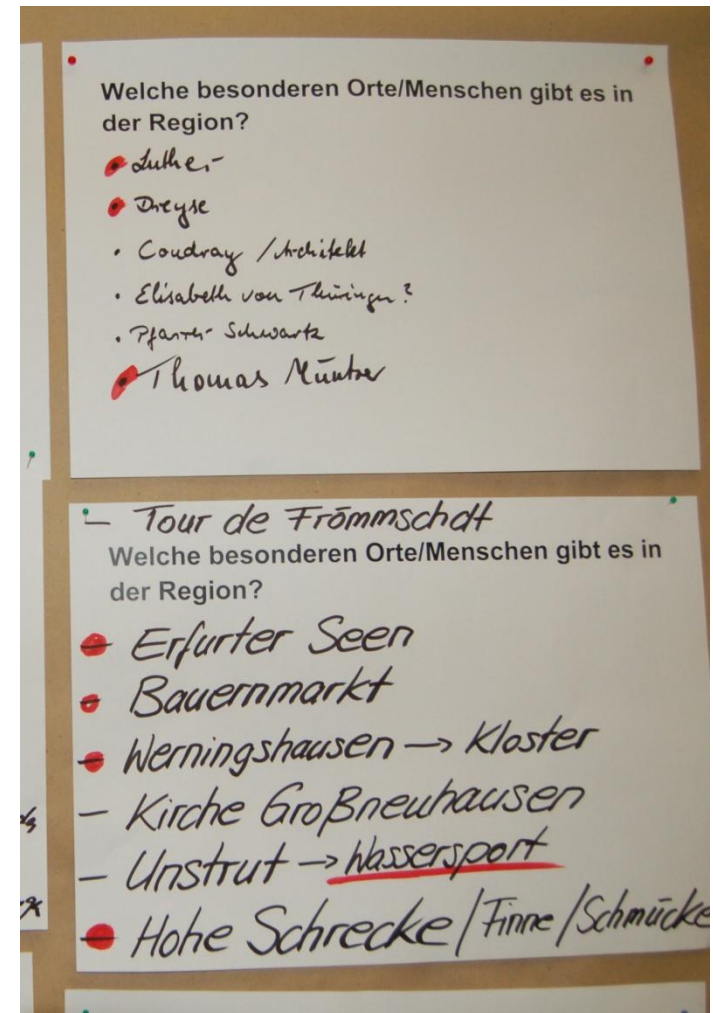 Welche besonderen Orte/Menschen gibt es in
der Region?
Luther
Dreyse
Coudray / Architekt
Elisabeth von Thüringen?
Pfarrer Schwartz
Thomas Müntzer
– Tour de Frömmschdt
Welche besonderen Orte/Menschen gibt es in
der Region?
– Erfurter Seen
– Bauernmarkt
– Werningshausen → Kloster
– Kirche Großneuhausen
– Unstrut → Wassersport
– Hohe Schrecke / Finne / Schmücke